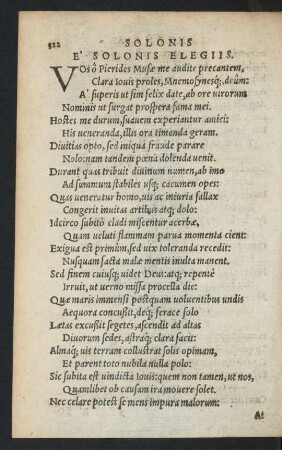 522 SOLONIS
E' SOLONIS ELEGIIS.
VOs ô Pierides Musæ me audite precantem,
Clara Iouis proles, Mnemosynesq́;, deûm:
A' superis ut sim felix date, ab ore uirorum
Nominis ut surgat prospera fama mei.
Hostes me durum, suauem experiantur amici:
His ueneranda, illis ora timenda geram.
Diuitias opto, sed iniqua fraude parare
Nolo: nam tandem pœna dolenda uenit.
Durant quas tribuit diuinum numen, ab imo
Ad summum stabiles usq; cacumen opes:
Quas ueneratur homo, uis ac iniuria fallax
Congerit inuitas artibus atq; dolo:
Idcirco subitò cladi miscentur acerbæ,
Quam ueluti flammam parua momenta cient:
Exigua est primùm, sed uix toleranda recedit:
Nusquam facta malæ mentis inulta manent.
Sed finem cuiusq; uidet Deus: atq; repentè
Irruit, ut uerno missa procella die:
Quæ maris immensi postquam uoluentibus undis
Aequora concussit, deq; ferace solo
Lætas excussit segetes, ascendit ad altas
Diuorum sedes, astraq; clara facit:
Almaq; uis terram collustrat solis opimam,
Et parent toto nubila nulla polo:
Sic subita est uindicta Iouis: quem non tamen, ut nos,
Quamlibet ob causam ira mouere solet.
Nec celare potest se mens impura malorum:
At